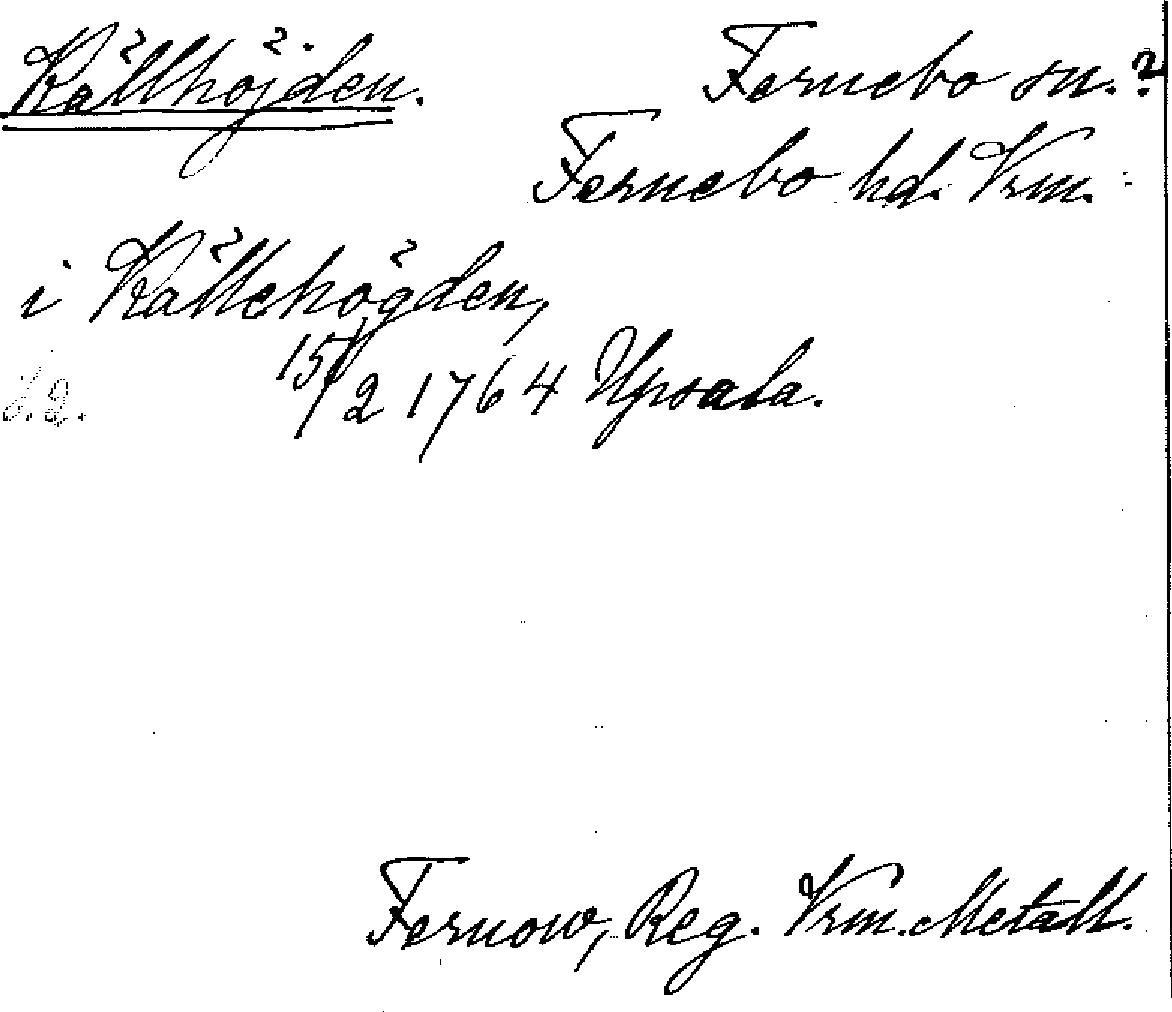 Källhöjden. Fernebo sn.?
Fernebo hd. Vrm.
i Källehögden,
15/2 1764 Upsala.
Fernow, Reg. Vrm. Metall.